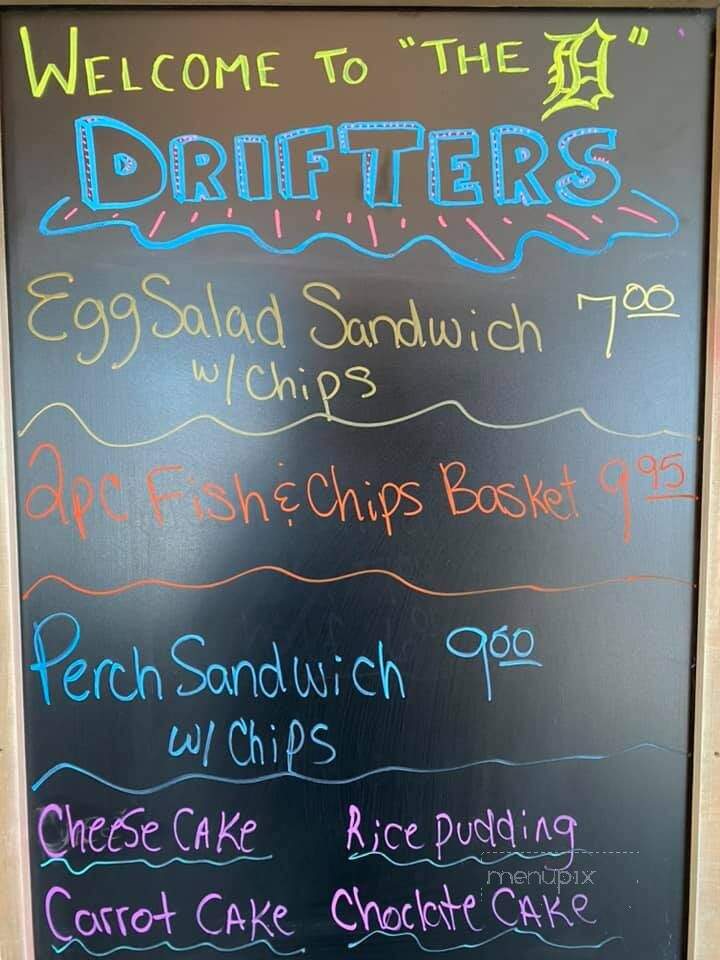 WELCOME TO "THE D"
DRIFTERS
Egg Salad Sandwich 7 00
w/ Chips
2pc Fish & Chips Basket 9 95
Perch Sandwich 9 00
w/ Chips
Cheese CAKe Rice Pudding
menupix
Carrot CAKe Choclate CAKe